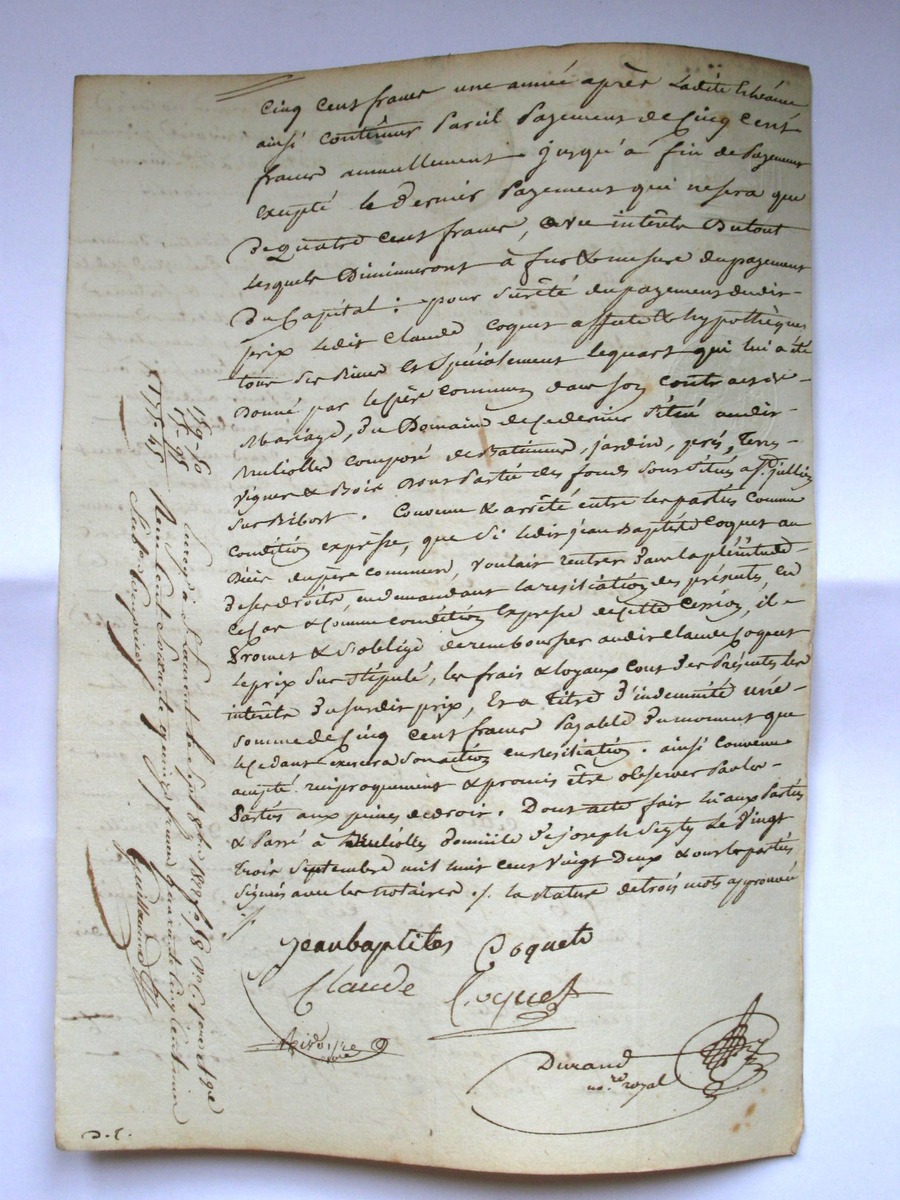 Cinq cent francs une année après Ladite Echéance
ainsi Continuer Pareil Payement de Cinq cent
francs annuellement jusqu'à fin de Payement
excepté le Dernier Payement qui ne sera que
De Quatre cent francs, avec intérêts Dutout
Lesquels Diminueront à fur & mesure du payement
Du Capital : pour sûreté du payement dudit
prix Ledit Claude Coquet affecte & hypothèque
tous ses Biens et Spécialement lequart qui lui a été
Donné par le père commun dans son contract de
Mariage, Du Domaine de ce dernier Situé audit
composé de Batimens, jardin, prés, Terres
Vignes & Bois Dont Partie des fonds sont situés a St. jullien
Sur Bibost. Convenu & arrêté entre les parties comme
Condition expresse, que Si ledit jean Baptiste Coquet au
Décès du père commun, voulait rentrer dans la plénitude
de ses droits, en demandant la résiliation des présentes, en
Ce cas & comme condition Expresse de Cette Cession, il
Promet & S'oblige de rembourser audit Claude Coquet
le prix Sus Stipulé, les frais & loyaux cout des Présentes les
intérêts Dususdit prix, Et a Titre D'indemnité une
Somme de Cinq cent francs Payable Du moment que
le Cédant exercera Son action en Résiliation. ainsi convenu
accepté réciproquement & promis être observé Par les
Parties aux peines de droit. Dont acte fait lu aux Parties
& Passé à Domicile de joseph le Vingt
trois Septembre mil huit cent Vingt Deux & ont les parties
Signés avec les notaires ./. la rature de trois mots approuvée
./.
Jean baptiste Coquet
Claude Coquet
Durand
no.re royal
D.C.
159-50
15-95
175-45
Enreg. à St Laurent le Sept 8bre 1822
Reçu Cent Soixante quinze francs quarante Cinq Centimes
Guillaume